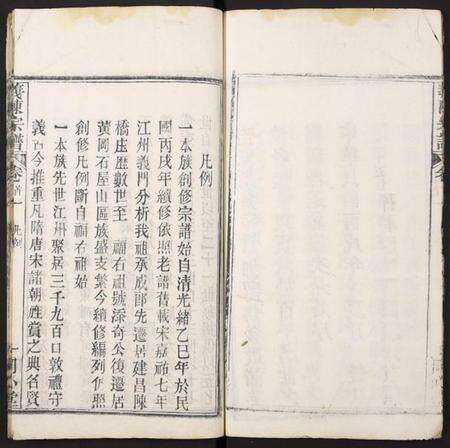 凡例
一本族創修宗譜始自清光緒乙巳年於民
國丙戌年續修依照老譜舊載宋嘉祐七年
江州義門分析我祖承成郎先遷居建昌陳
橋庄歷數世至 祖右祖號添奇公復遷居
黃岡石屋山區族盛支繁今續修編列併照
創修凡例斷自祖右祖始
一本族先世江州聚居三千九百口敦禮守
義古今推重凡隋唐宋諸朝姓賞之典名賢
義陳宗譜
卷首
凡例
一
同心堂